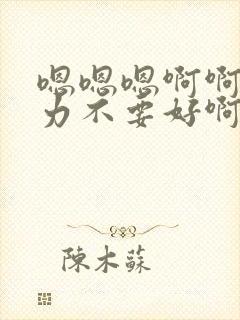 嗯嗯嗯啊啊
力不要好啊
陈木苏